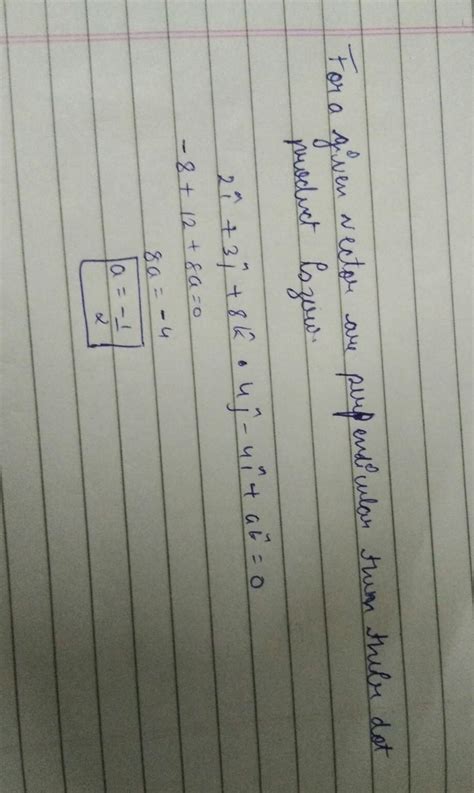 For a given vector are perpendicular then their dot
product is zero.
2î + 3ĵ + 8k̂ • 4ĵ - 4î + ak̂ = 0
-8 + 12 + 8a = 0
8a = -4
a = -1/2